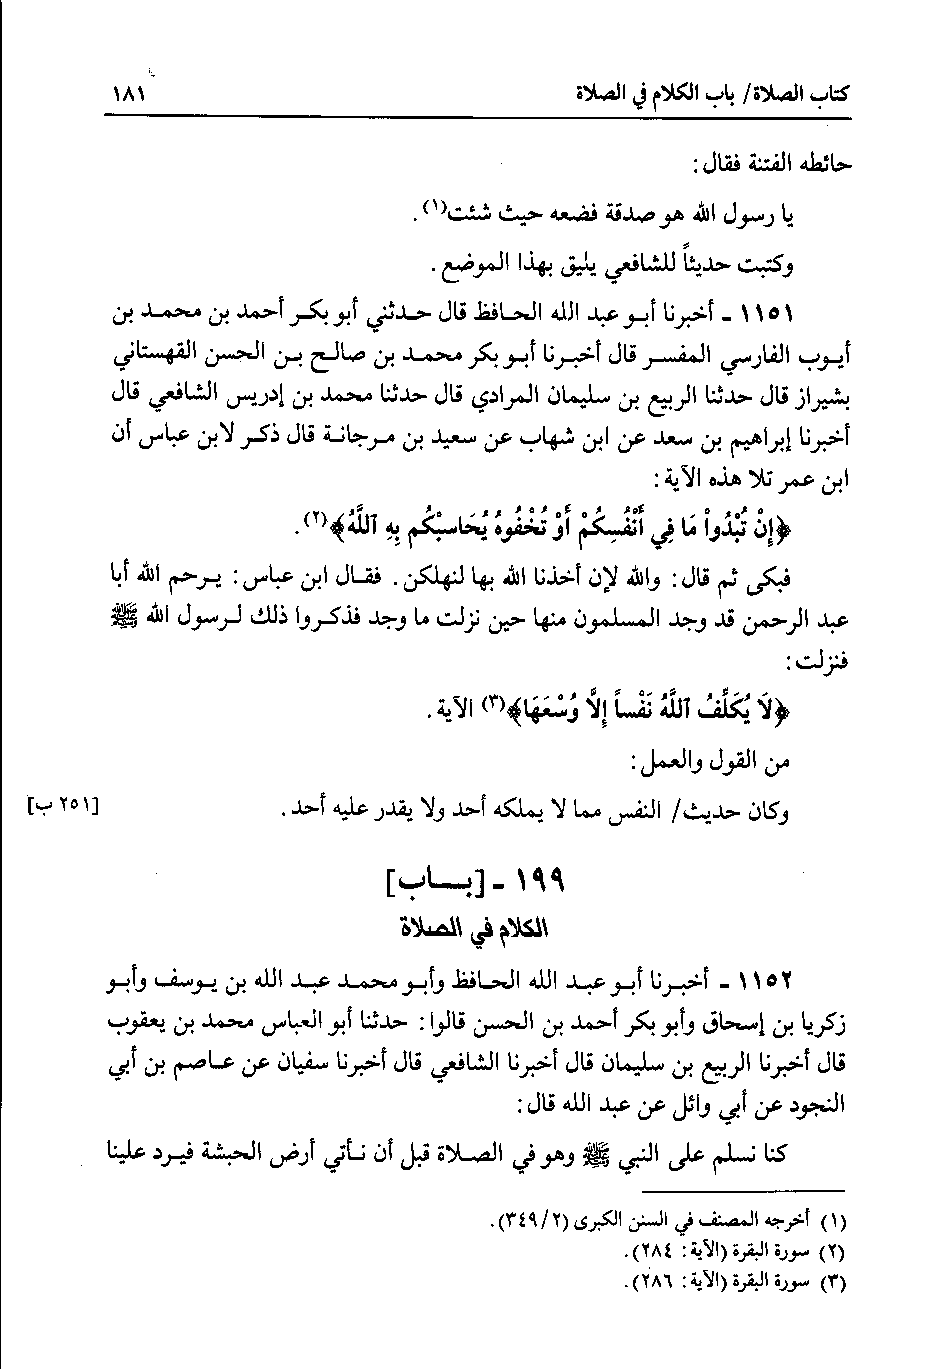 كتاب الصلاة/ باب الكلام في الصلاة ١٨١
حائطه الفتنة فقال:
يا رسول الله هو صدقة فضعه حيث شئت(١).
وكتبت حديثاً للشافعي يليق بهذا الموضع.
١١٥١ - أخبرنا أبو عبد الله الحافظ قال حدثني أبو بكر أحمد بن محمد بن
أيوب الفارسي المفسر قال أخبرنا أبو بكر محمد بن صالح بن الحسن القهستاني
بشيراز قال حدثنا الربيع بن سليمان المرادي قال حدثنا محمد بن إدريس الشافعي قال
أخبرنا إبراهيم بن سعد عن ابن شهاب عن سعيد بن مرجانة قال ذكر لابن عباس أن
ابن عمر تلا هذه الآية:
﴿إِنْ تُبْدُواْ مَا فِي أَنْفُسِكُمْ أَوْ تُخْفُوهُ يُحَاسِبْكُم بِهِ ٱللَّهُ﴾(٢).
فبكى ثم قال: والله لإن أخذنا الله بها لنهلكن. فقال ابن عباس: يرحم الله أبا
عبد الرحمن قد وجد المسلمون منها حين نزلت ما وجد فذكروا ذلك لرسول الله ﷺ
فنزلت:
﴿لَا يُكَلِّفُ ٱللَّهُ نَفْساً إِلَّا وُسْعَهَا﴾(٣) الآية.
من القول والعمل:
وكان حديث/ النفس مما لا يملكه أحد ولا يقدر عليه أحد. [٢٥١ ب]
١٩٩ - [بـاب]
الكلام في الصلاة
١١٥٢ - أخبرنا أبو عبد الله الحافظ وأبو محمد عبد الله بن يوسف وأبو
زكريا بن إسحاق وأبو بكر أحمد بن الحسن قالوا: حدثنا أبو العباس محمد بن يعقوب
قال أخبرنا الربيع بن سليمان قال أخبرنا الشافعي قال أخبرنا سفيان عن عاصم بن أبي
النجود عن أبي وائل عن عبد الله قال:
كنا نسلم على النبي ﷺ وهو في الصلاة قبل أن نأتي أرض الحبشة فيرد علينا
(١) أخرجه المصنف في السنن الكبرى (٣٤٩/٢).
(٢) سورة البقرة (الآية: ٢٨٤).
(٣) سورة البقرة (الآية: ٢٨٦).